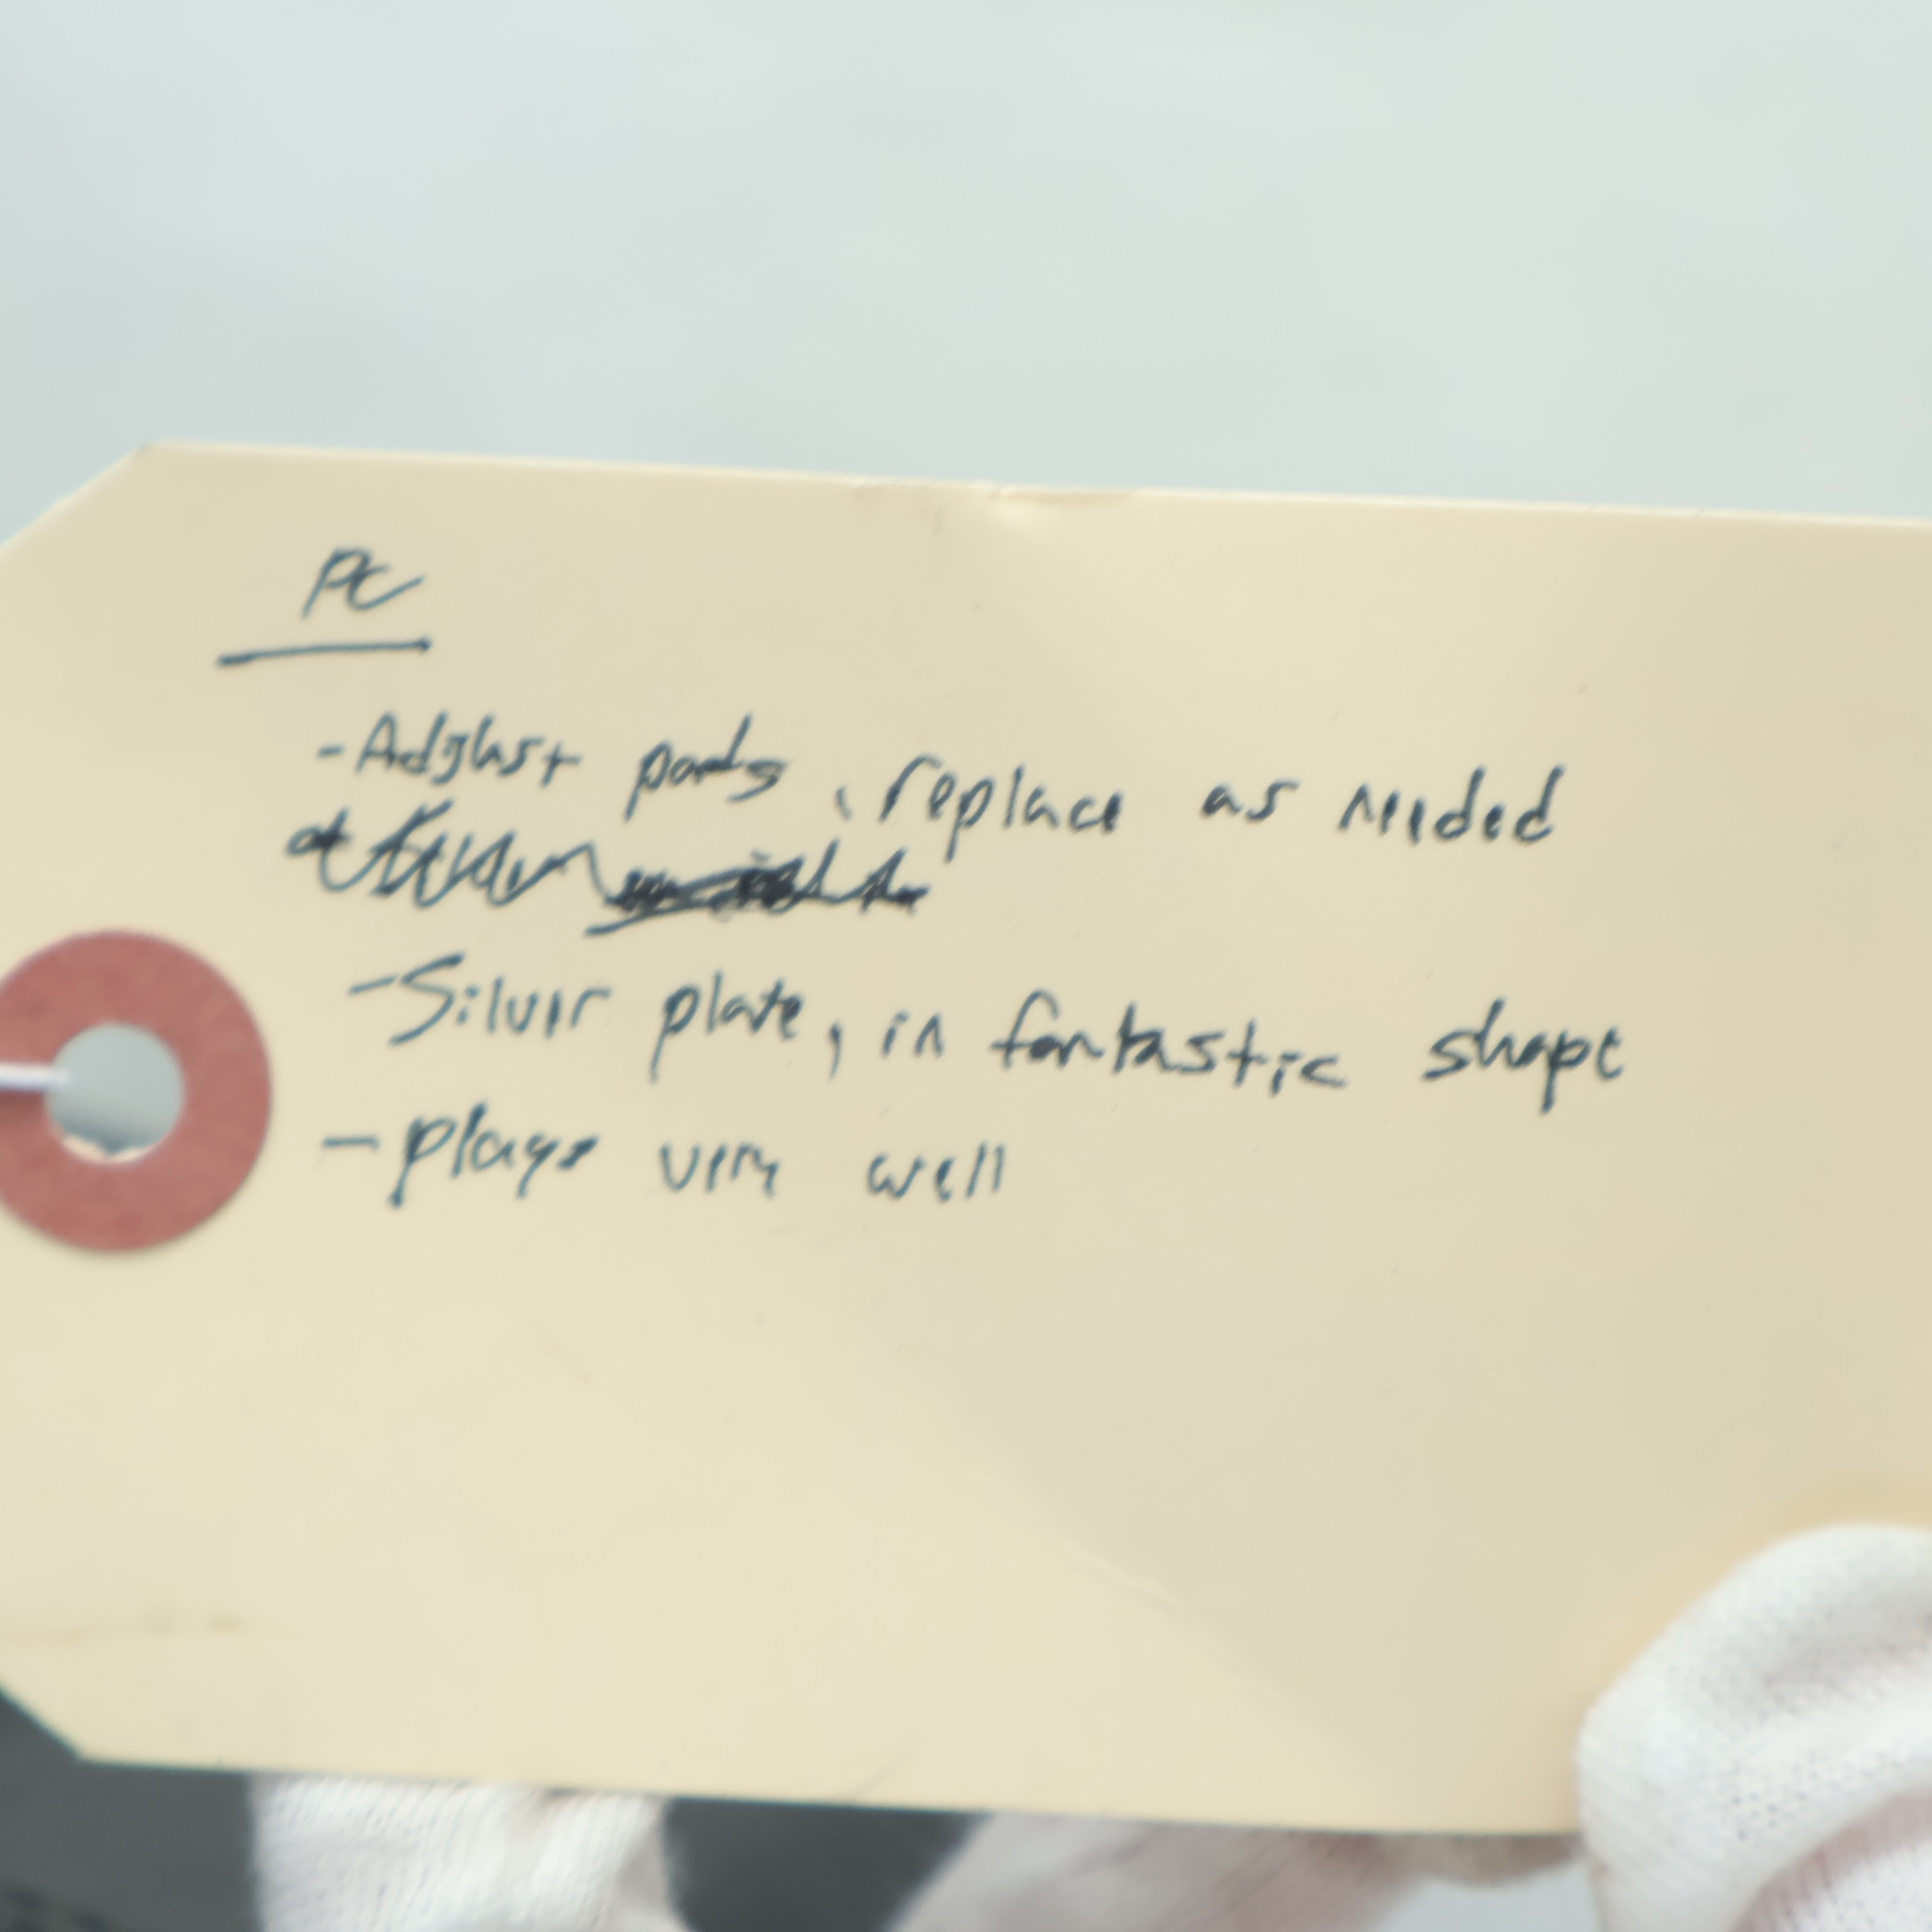 PC
- Adjust pads, replace as needed
- Silver plate, in fantastic shape
- plays very well